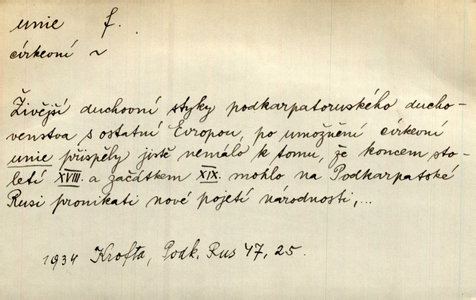 unie f.
církevní ~
Živější duchovní styky podkarpatoruského ducho-
venstva s ostatní Evropou, po umožnění církevní
unie přispěly jistě nemálo k tomu, že koncem sto-
letí XVIII. a začátkem XIX. mohlo na Podkarpatské
Rusi pronikati nové pojetí národnosti,...
1934 Krofta, Podk. Rus 47, 25.